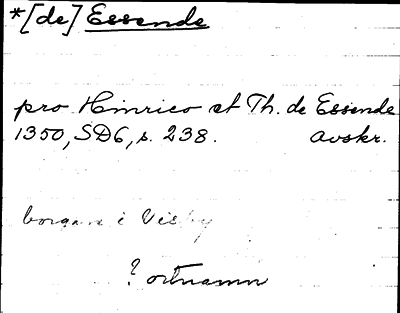 *[de] Essende
pro Hinrico et Th. de Essende
1350, SD6, s. 238. Avskr.
borgare i Visby
? ortnamn